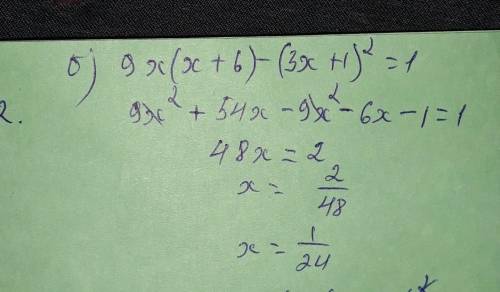 б) 9x(x+6)-(3x+1)²=1
2. 9x²+54x-9x²-6x-1=1
48x=2
x=2/48
x=1/24